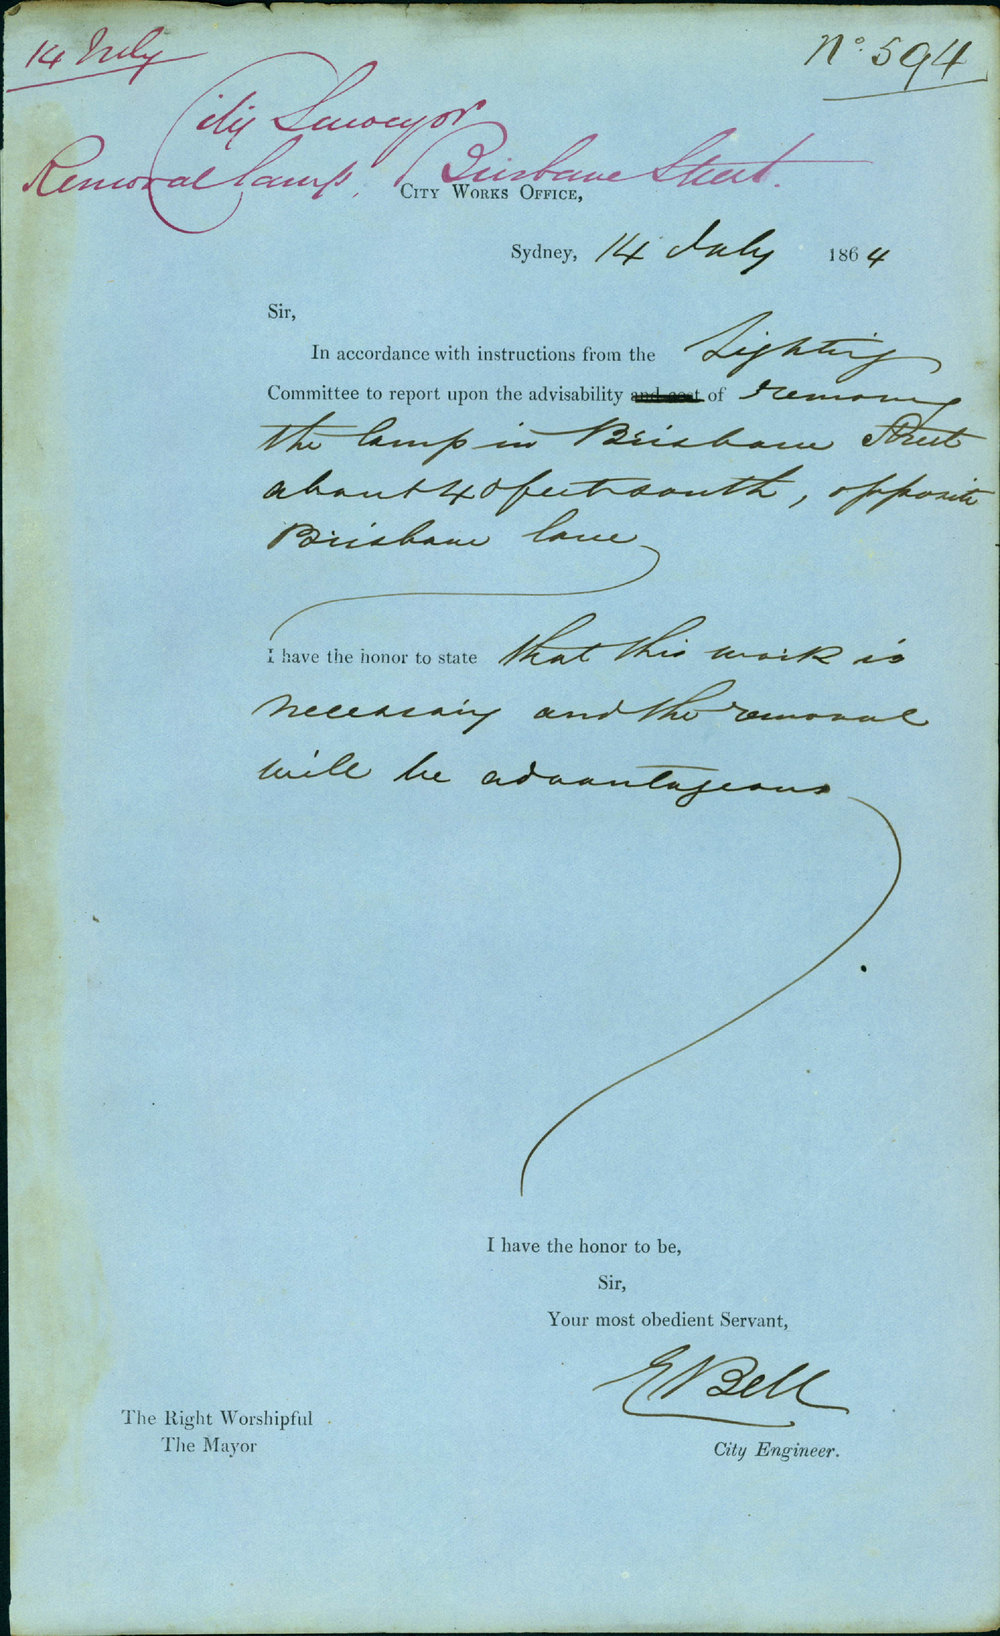 14 July
No. 594
City Surveyor
Removal lamp, Brisbane Street.
City Works Office,
Sydney, 14 July 1864
Sir,
In accordance with instructions from the Lighting
Committee to report upon the advisability and cost of removing
the lamp in Brisbane Street
about 40 feet south, opposite
Brisbane lane
I have the honor to state that this work is
necessary and the removal
will be advantageous
I have the honor to be,
Sir,
Your most obedient Servant,
E Bell
City Engineer.
The Right Worshipful
The Mayor